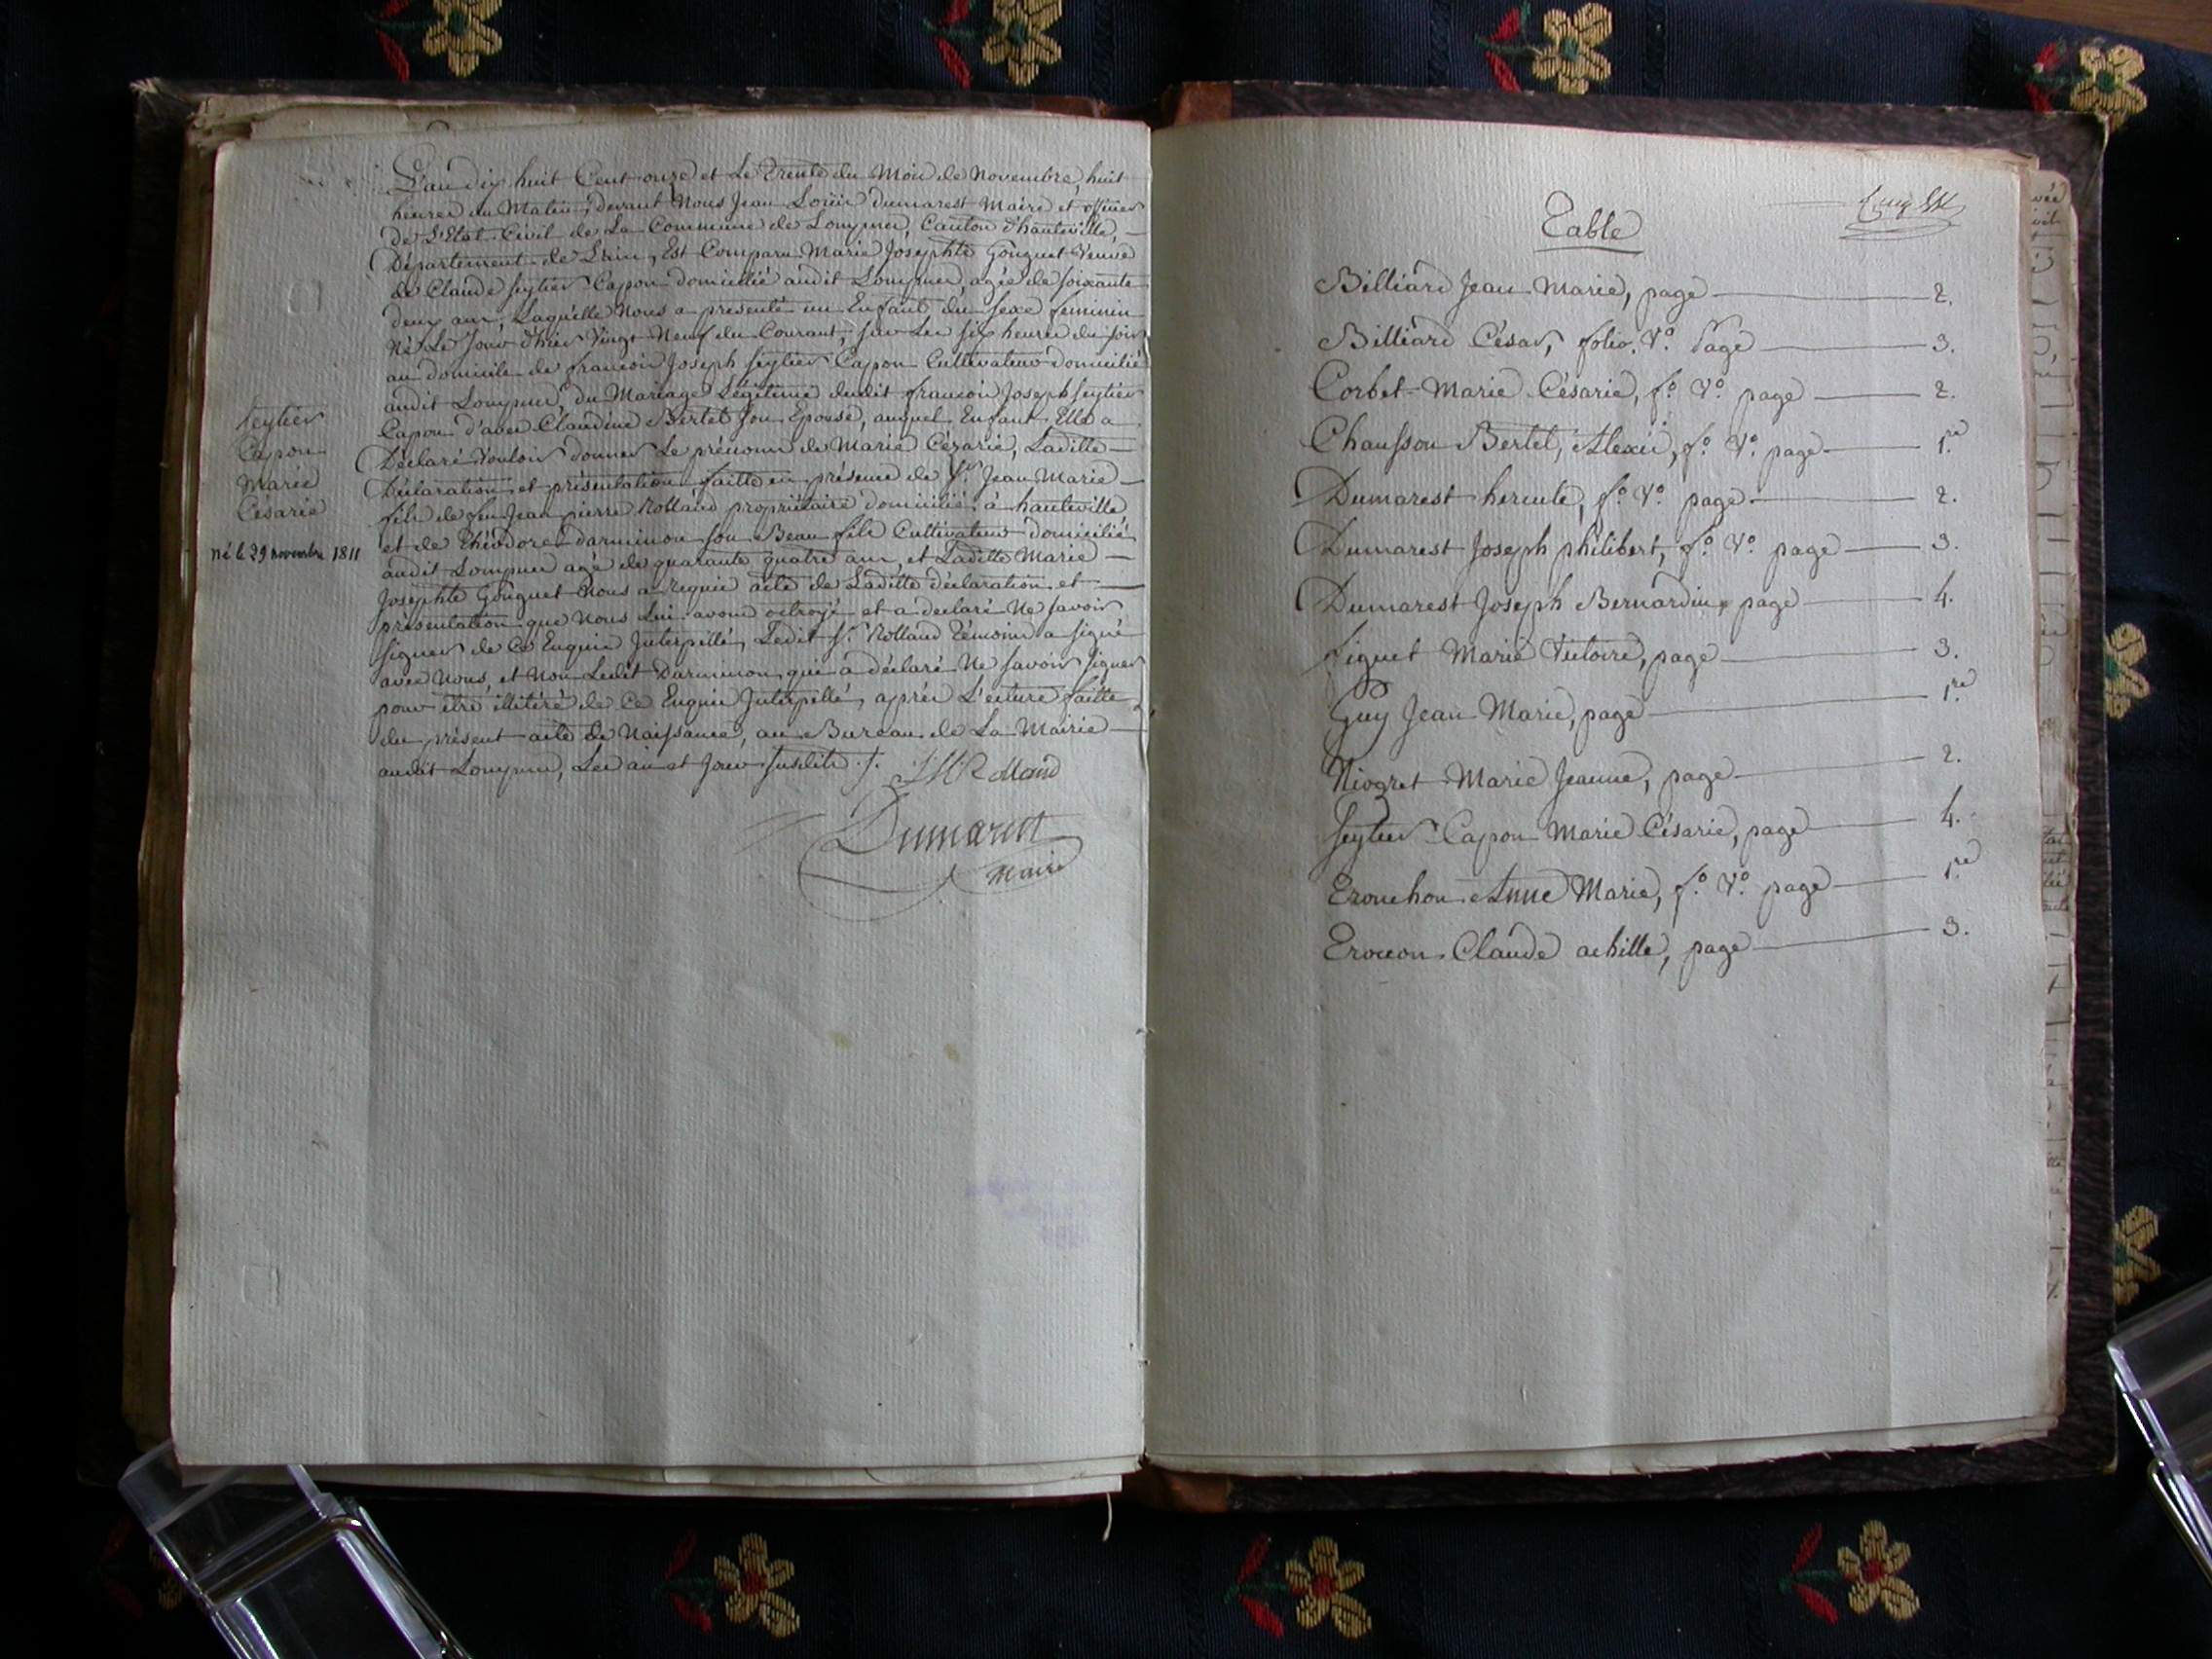 L'an dix huit Cent onze et Le Trente du Mois de Novembre, huit
heures du Matin, devant Nous Jean Loüis Dumarest Maire et officier
de L'Etat Civil de La Commune de Lompnes, Canton d'hauteville,
Département de L'ain, Est Comparu Marie Josephte Gonguet Veuve
de Claude Seytier Capon domiciliée audit Lompnes, agée de soixante
deux ans, Laquelle Nous a présenté un Enfant du sexe feminin
Né Le Jour d'hier Vingt Neuf du Courant, sur Les six heures du soir
au domicile de françois Joseph Seytier Capon Cultivateur domicilié
audit Lompnes, du Mariage Légitime dudit françois Joseph Seytier
Capon d'avec Claudine Bertet son Epouse, auquel Enfant Elle a
Déclaré Vouloir donner Le prénoms de Marie Cézarie, Laditte
Déclaration et présentation faitte en présence de Sr. Jean Marie
fils de feu Jean pierre Rolland propriétaire domicilié à hauteville
et de Théodore Darminon son Beau fils Cultivateur domicilié
audit Lompnes agé de quarante quatre ans, et Laditte Marie
Josephte Gonguet Nous a requis acte de Laditte déclaration et
présentation que Nous Lui avons octroyé et a declaré Ne savoir
signer de Ce Enquise Interpellé, Ledit Sr. Rolland Témoins a signé
avec Nous, et Non Ledit Darminon qui a déclaré Ne savoir signer
pour être illitéré de Ce Enquis Interpellé, après L'ecture faitte
du présent acte de Naissance, au Bureau de La Mairie
audit Lompnes, Les an et Jour susdits ./.
JM Rolland
Dumarest
Maire
Seytier
Capon
Marie
Césarie
né le 29 novembre 1811
Table
Billiard Jean Marie, page 2.
Billiard César, folio. Vo. Page 3.
Corbet Marie Césarie, fo. Vo. page 2.
Chausson Bertet, Alexis, fo. Vo. page 1.re
Dumarest hercule, fo. Vo. page 2.
Dumarest Joseph philibert, fo. Vo. page 3.
Dumarest Joseph Bernardin, page 4.
figuet Marie Victoire, page 3.
Guy Jean Marie, page 1.re
Niogret Marie Jeanne, page 2.
Seytier Capon Marie Césarie, page 4.
Trouchon Anne Marie, fo. Vo. page 1.re
Trocon Claude achille, page 3.